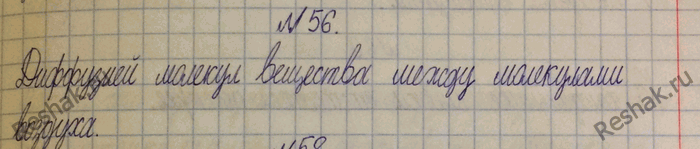 №56.
Диффузией молекул вещества между молекулами
воздуха.
№58
Reshak.ru